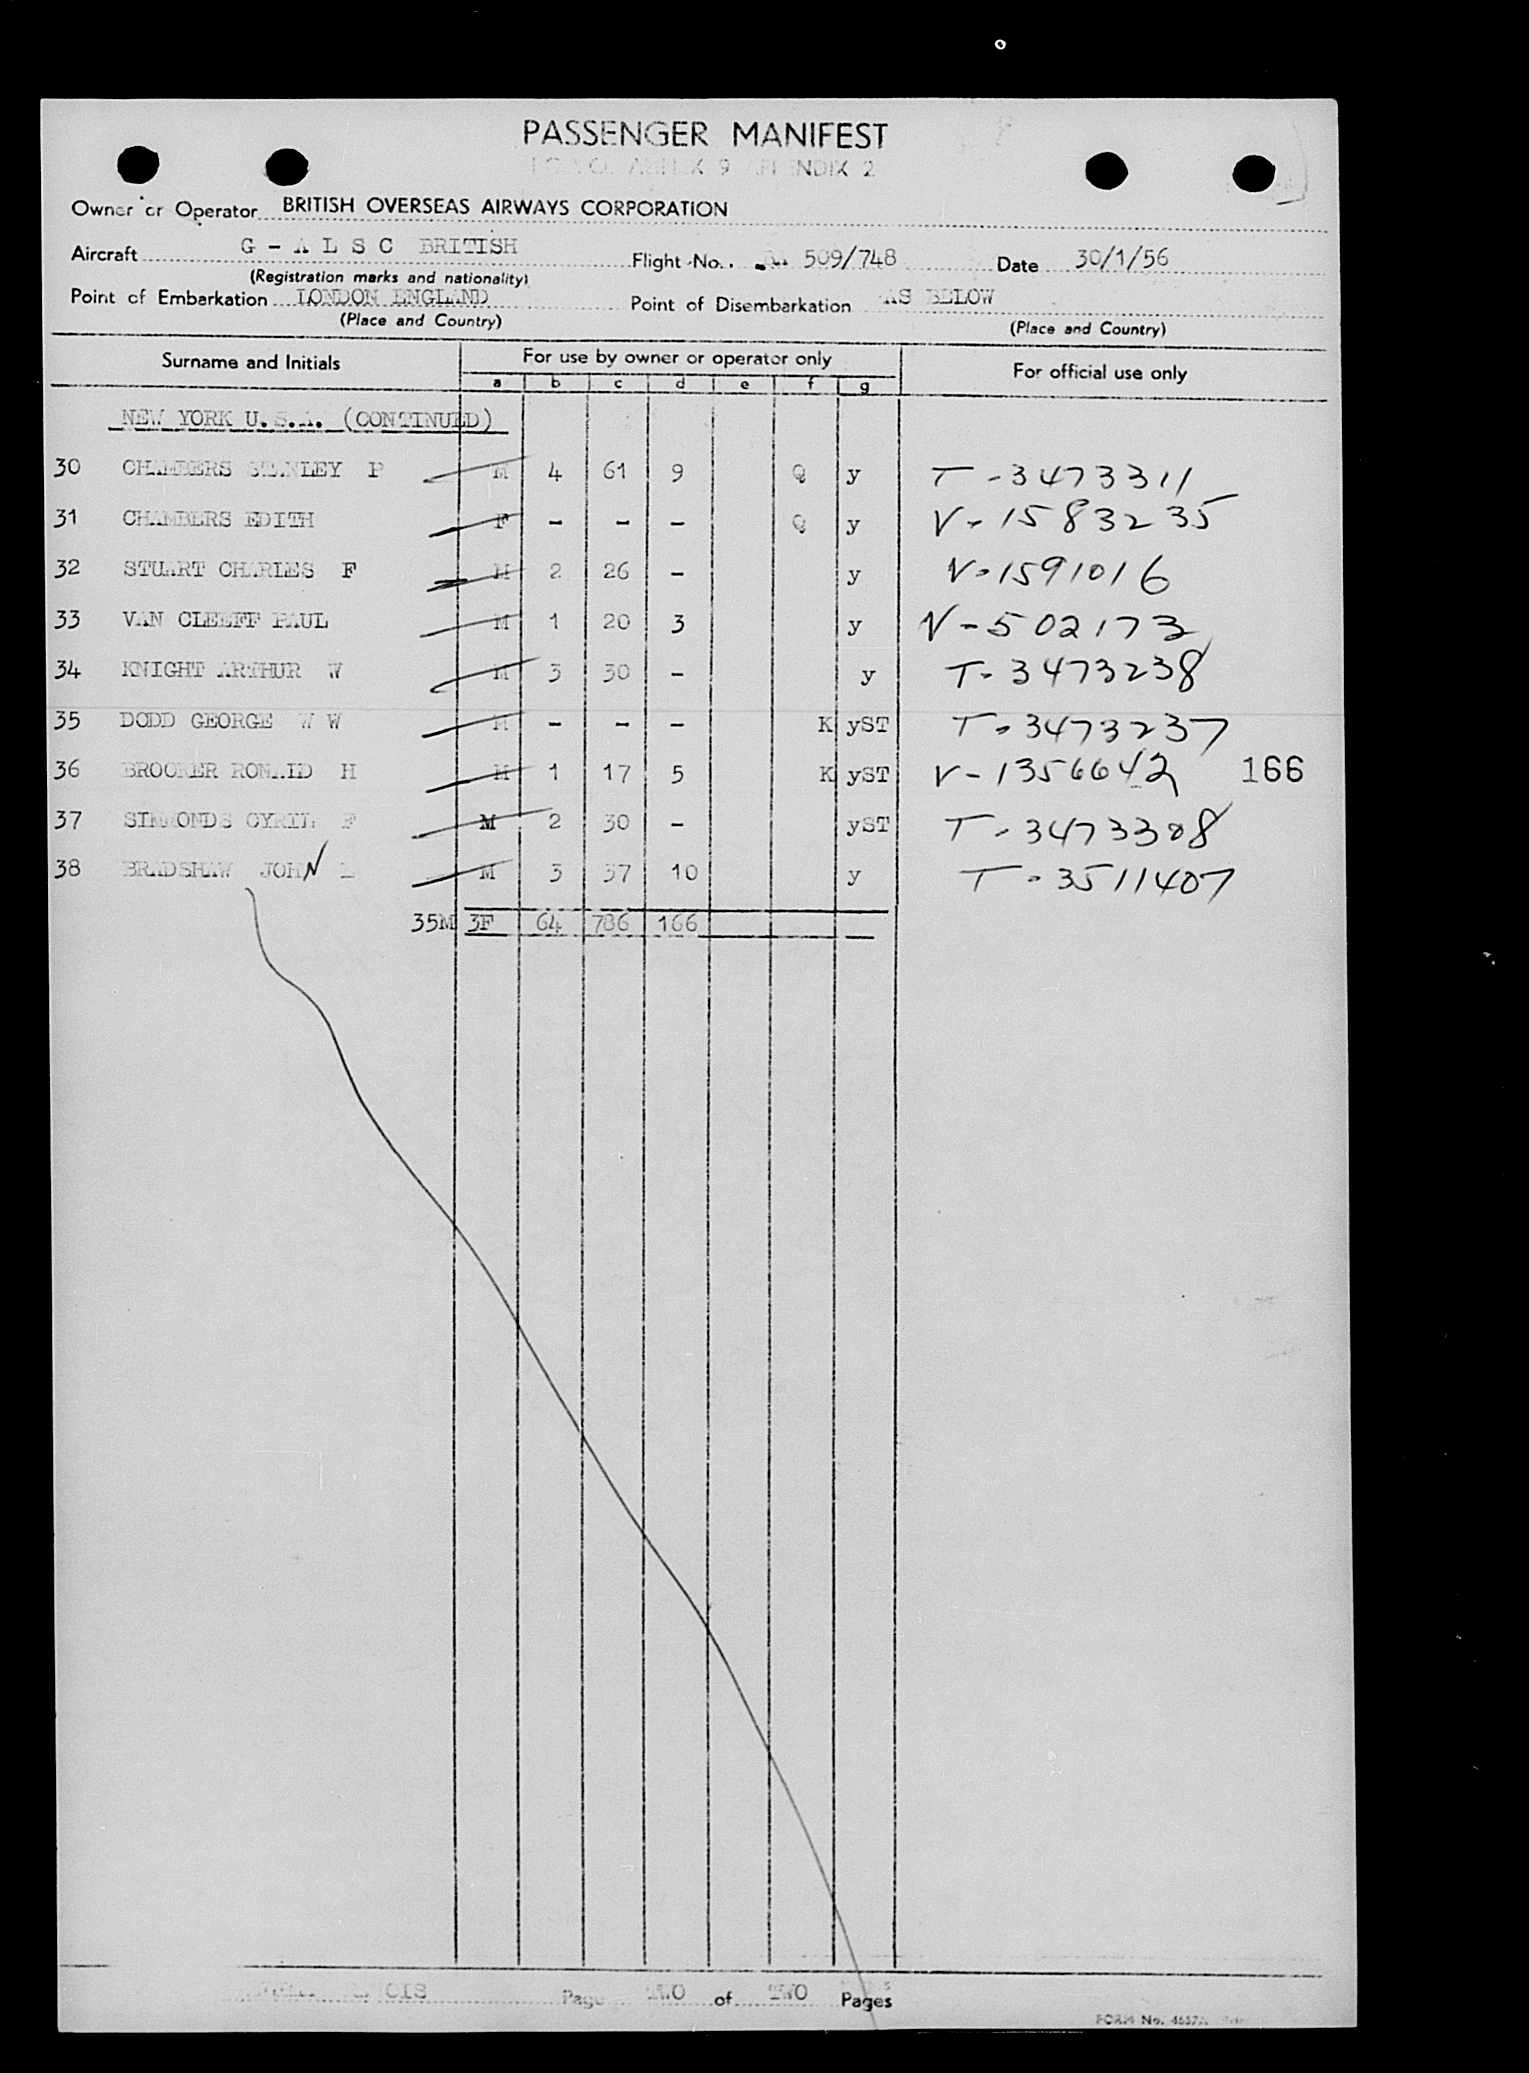 PASSENGER MANIFEST
9 NDIX 2
Owner or Operator BRITISH OVERSEAS AIRWAYS CORPORATION
Aircraft G - A L S C BRITISH Flight No. 509/748 Date 30/1/56
(Registration marks and nationality)
Point of Embarkation LONDON ENGLAND Point of Disembarkation AS BELOW
(Place and Country) (Place and Country)
Surname and Initials For use by owner or operator only For official use only
a b c d e f g
NEW YORK U.S.A. (CONTINUED)
30 CHAMBERS STANLEY P M 4 61 9 Q y T-3473311
31 CHAMBERS EDITH F - - - Q y V-1583235
32 STUART CHARLES F M 2 26 - y V-1591016
33 VAN CLEEFF PAUL M 1 20 3 y V-502173
34 KNIGHT ARTHUR W M 3 30 - y T-3473238
35 DODD GEORGE W W M - - - K yST T-3473237
36 BROOKER RONALD H M 1 17 5 K yST V-1356642 166
37 SIMMONDS CYRIL F M 2 30 - yST T-3473308
38 BRADSHAW JOHN L M 3 37 10 y T-3511407
35M 3F 64 786 166
Page TWO of TWO Pages
FORM No.